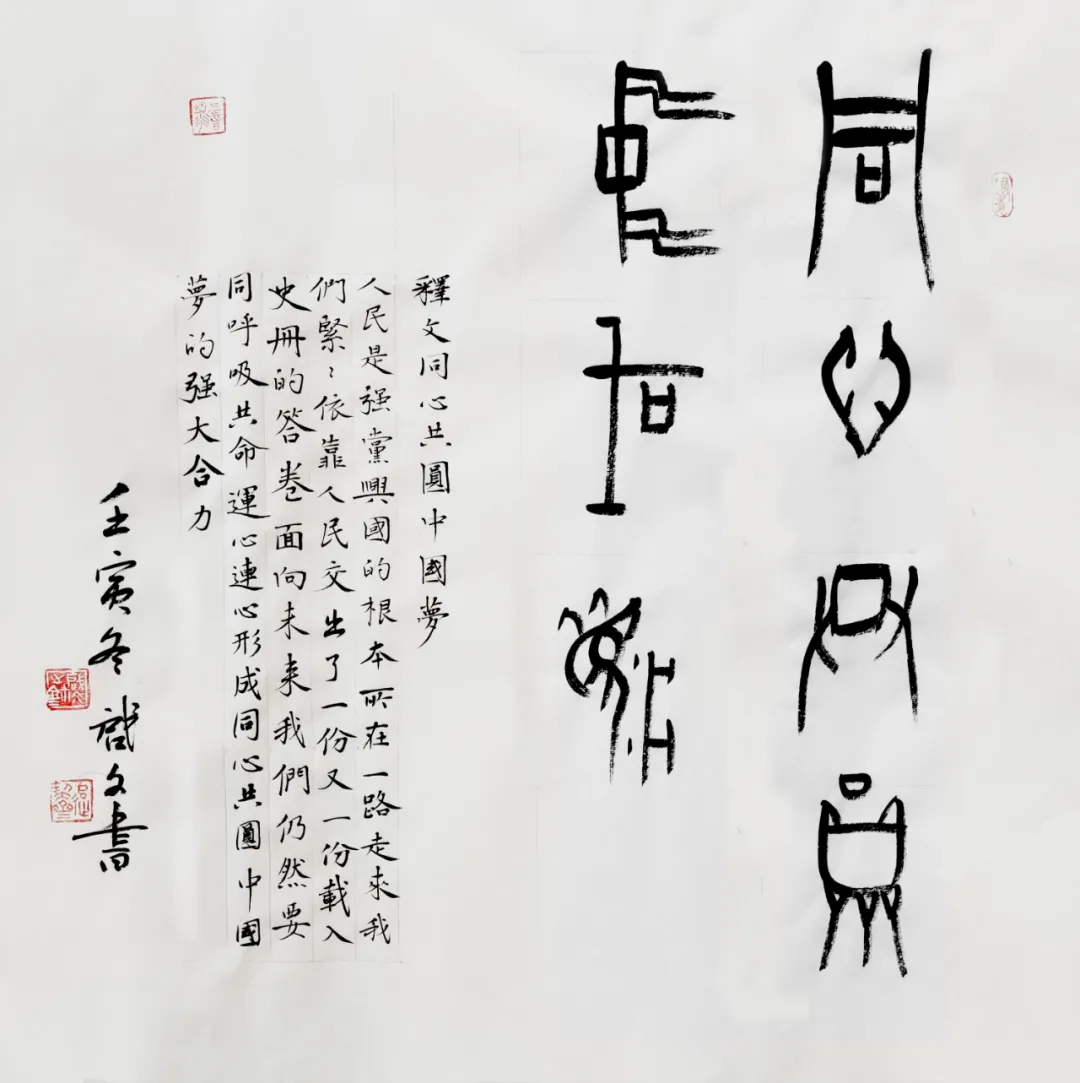 同心共圓
中國夢
釋文同心共圓中國夢
人民是强黨興國的根本所在一路走來我
們緊〻依靠人民交出了一份又一份載入
史冊的答卷面向未来我們仍然要
同呼吸共命運心連心形成同心共圓中國
夢的强大合力
壬寅冬啟文書